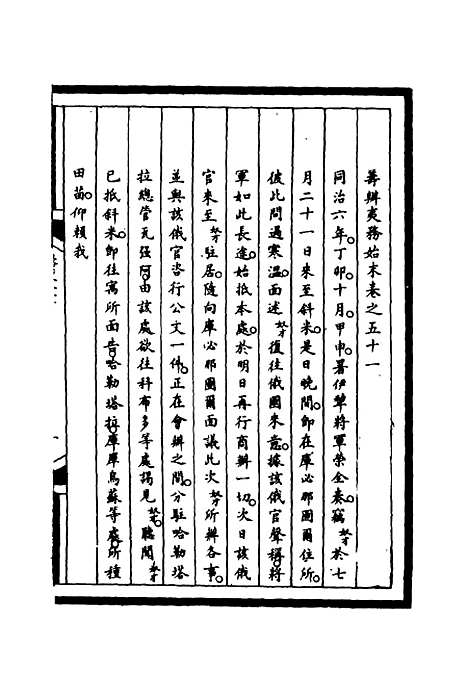 籌辦夷務始末卷之五十一
同治六年丁卯十月。甲申。署伊犂將軍榮全奏。竊奴才於七
月二十一日來至斜米。是日晚間。卽在庫必那圖爾住所。
彼此問過寒溫。面述奴才復往俄國來意。據該俄官聲稱。將
軍如此長途。始抵本處。於明日再行商辦一切。次日該俄
官來至奴才駐居。隨向庫必那圖爾面議此次奴才所辦各事。
並與該俄官咨行公文一件。正在會辦之間。分駐哈勒塔
拉總管瓦强阿。由該處欲往科布多等處謁見奴才。聽聞奴才
已抵斜米。卽往寓所面告。哈勒塔拉。庫庫烏蘇等處。所種
田苗。仰賴我